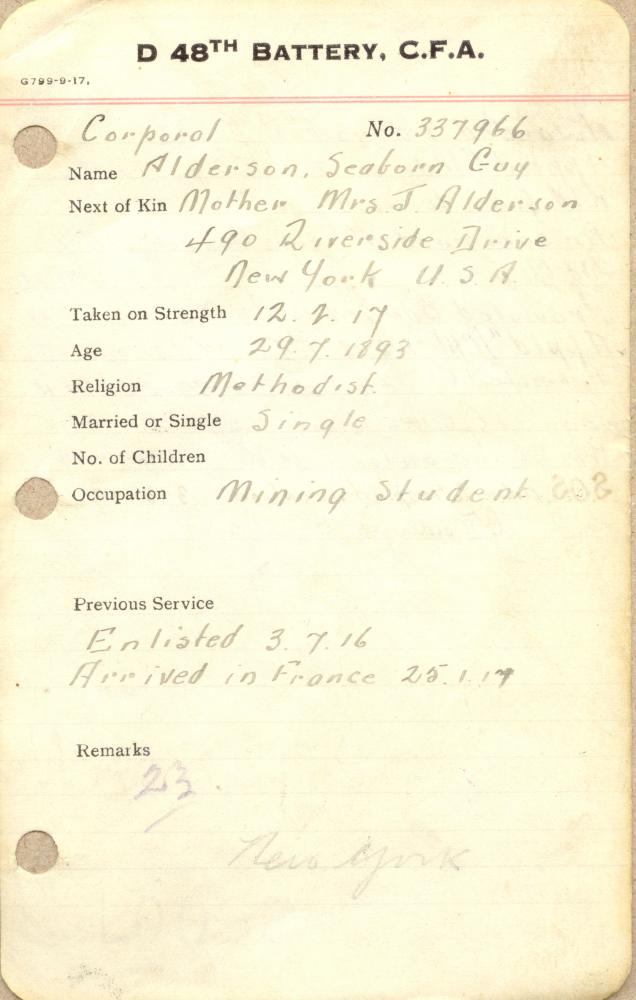 D 48TH BATTERY, C.F.A.
G799-9-17.
Corporal No. 337966
Name Alderson, Seaborn Guy
Next of Kin Mother Mrs J Alderson
490 Riverside Drive
New York U.S.A.
Taken on Strength 12.2.17
Age 29.7.1893
Religion Methodist
Married or Single Single
No. of Children
Occupation Mining Student
Previous Service
Enlisted 3.7.16
Arrived in France 25.1.17
Remarks
23
New York